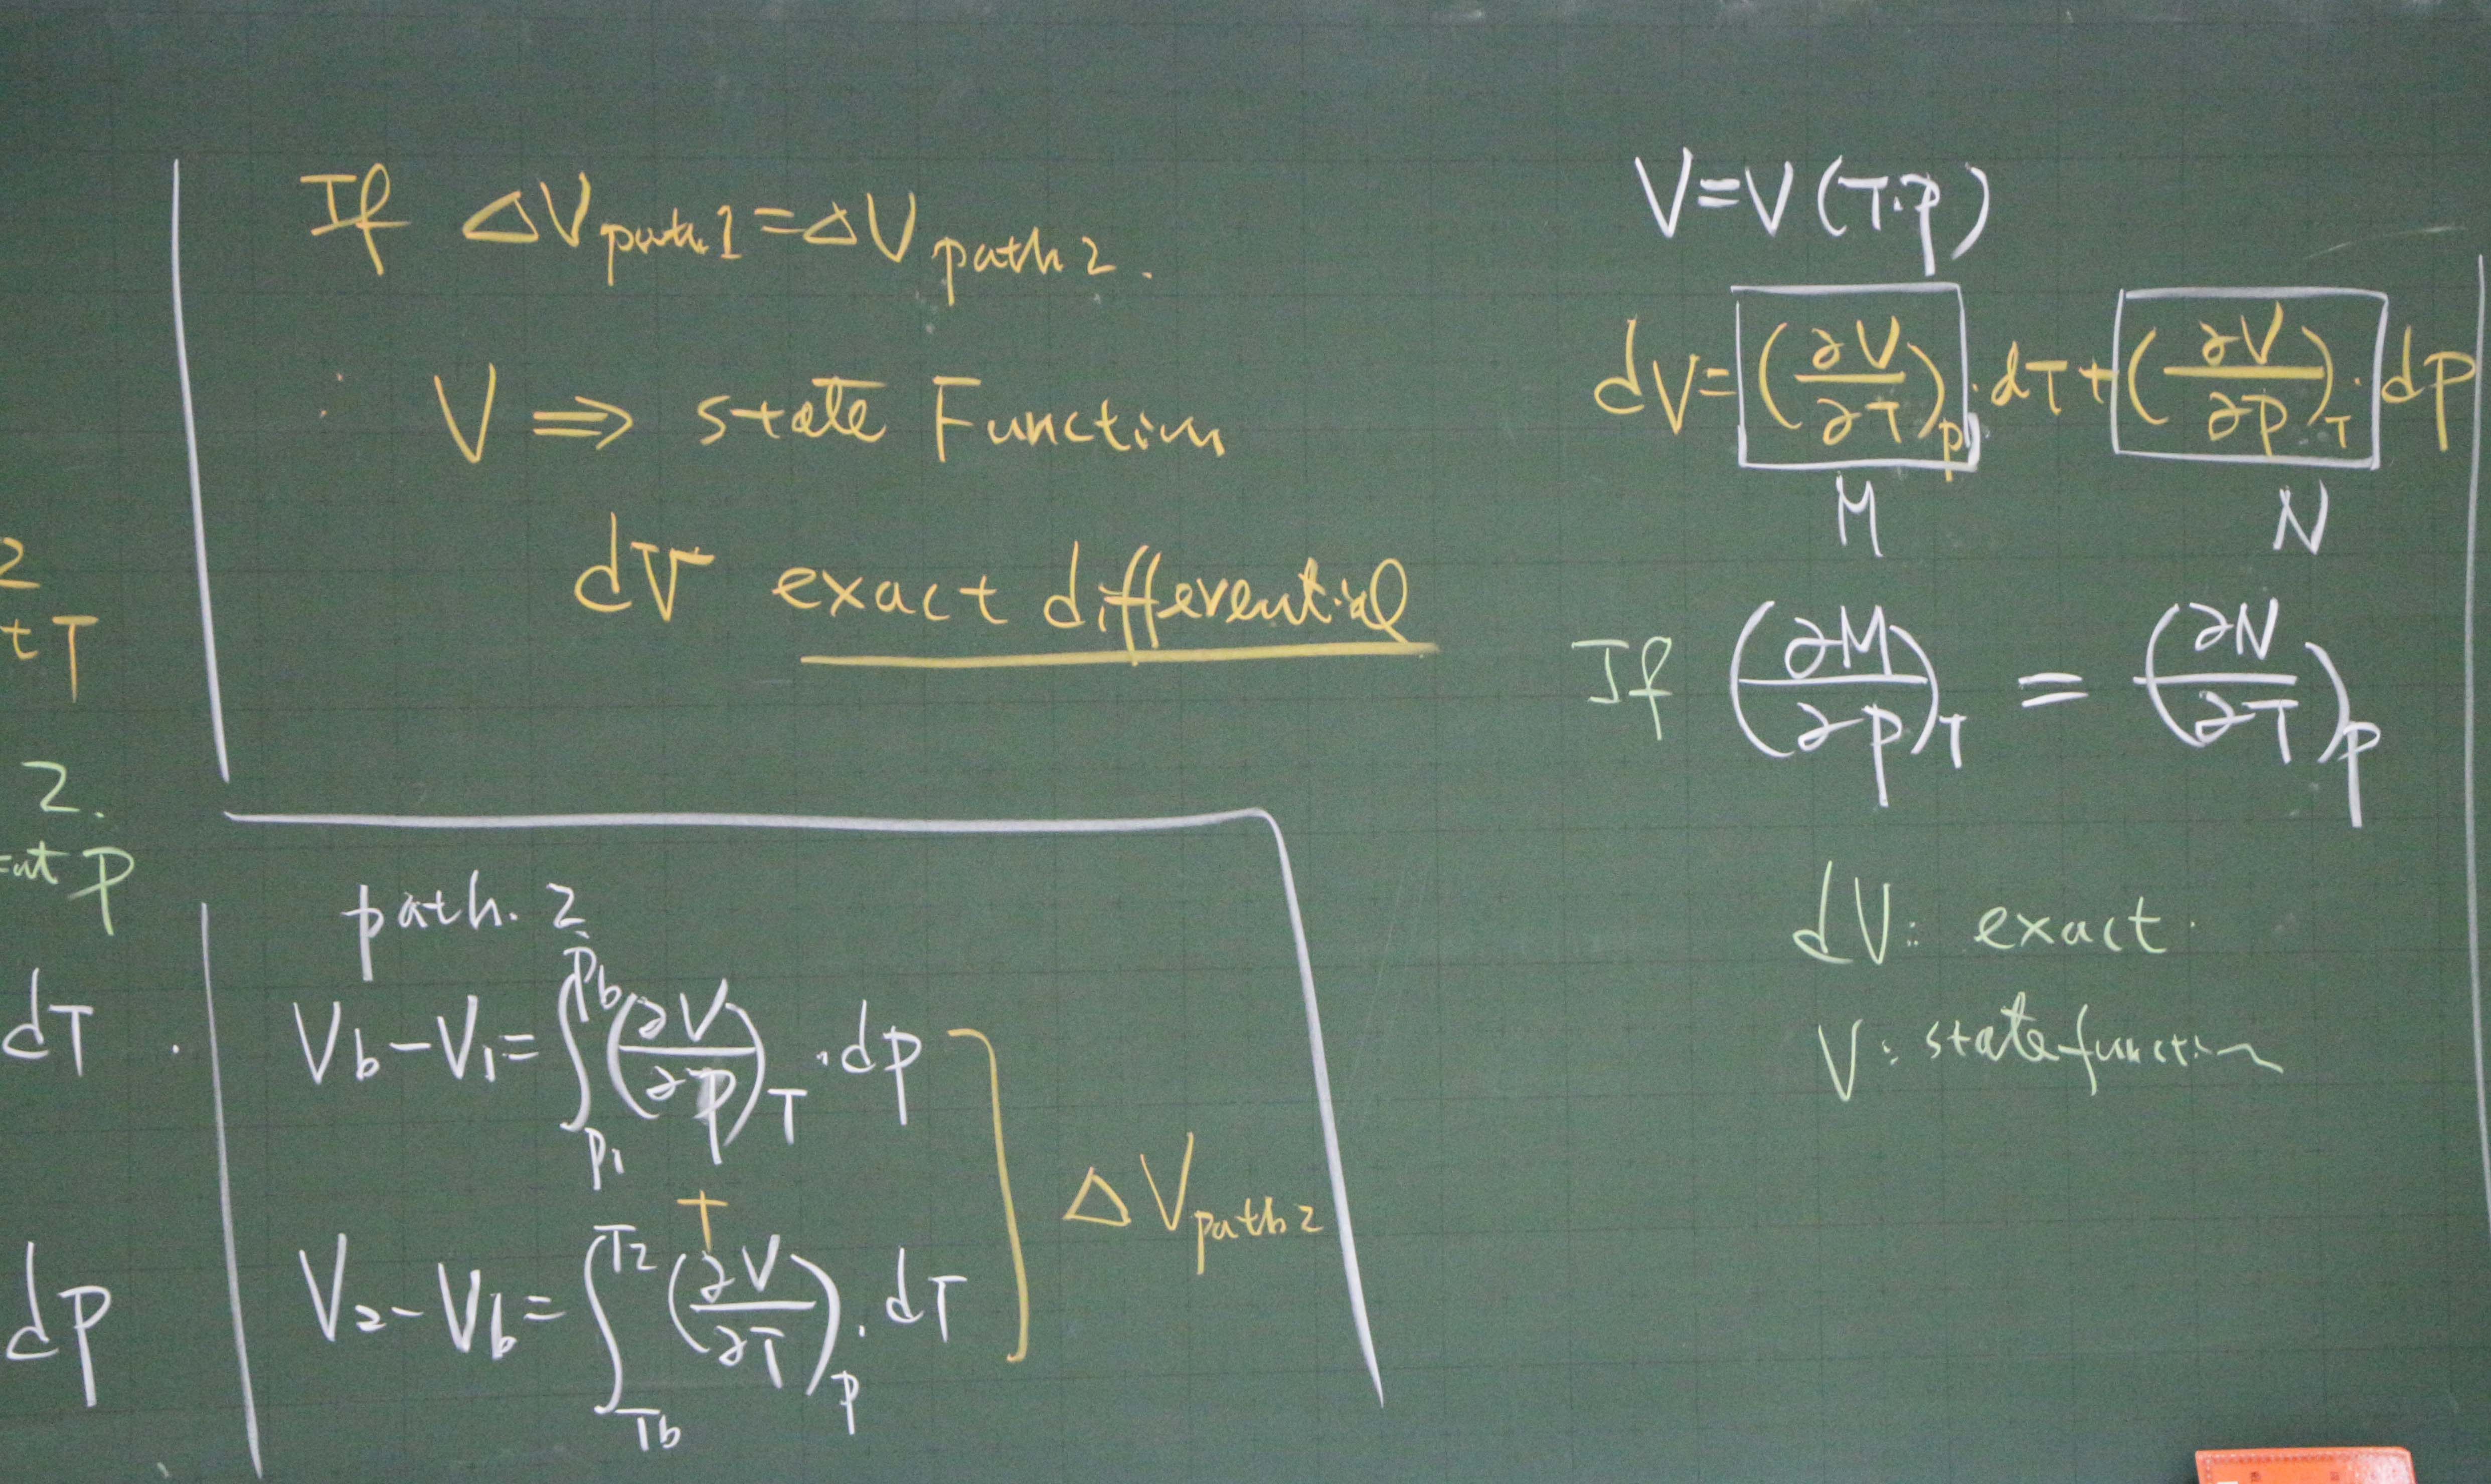 2
t T
2.
at P
dT .
dP
If ΔV path 1 = ΔV path 2 .
V ⇒ state Function
dV exact differential
path. 2
V_b - V_1 = ∫_{P_1}^{P_b} (∂V/∂P)_T · dP
+
V_2 - V_b = ∫_{T_b}^{T_2} (∂V/∂T)_P · dT
ΔV path 2
V = V (T.P)
dV = (∂V/∂T)_P · dT + (∂V/∂P)_T · dP
M N
If (∂M/∂P)_T = (∂N/∂T)_P
dV : exact .
V : state function